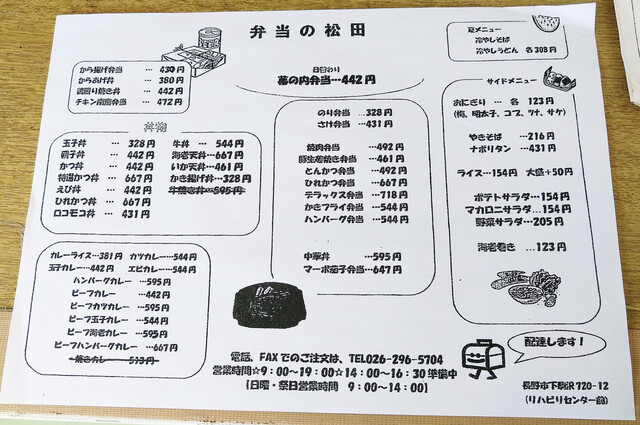 弁当の松田
夏メニュー
冷やしそば
冷やしうどん 各308円
から揚げ弁当 … 430円
からあげ丼 … 380円
鶏照り焼き丼 … 442円
チキン南蛮弁当 … 472円
日替わり
幕の内弁当…442円
サイドメニュー
おにぎり … 各 123円
(梅、明太子、コブ、ツナ、サケ)
やきそば …216円
ナポリタン … 431円
ライス…154円 大盛+50円
ポテトサラダ…154円
マカロニサラダ…154円
野菜サラダ…205円
海老巻き …123円
丼物
玉子丼 … 328円
親子丼 … 442円
かつ丼 … 442円
特選かつ丼 … 667円
えび丼 … 442円
ひれかつ丼 … 667円
ロコモコ丼 … 431円
牛丼 … 544円
海老天丼…667円
いか天丼…461円
かき揚げ丼…328円
牛焼き丼…595円
のり弁当 …328円
さけ弁当 …431円
焼肉弁当 …492円
豚生姜焼き弁当 …461円
とんかつ弁当 …492円
ひれかつ弁当 …667円
デラックス弁当 …718円
かきフライ弁当 …544円
ハンバーグ弁当 …544円
中華丼 …595円
マーボ茄子弁当 …647円
カレーライス…381円 カツカレー…544円
玉子カレー…442円 エビカレー…544円
ハンバーグカレー …595円
ビーフカレー …442円
ビーフカツカレー …595円
ビーフ玉子カレー …544円
ビーフ海老カレー …595円
ビーフハンバーグカレー …667円
焼きカレー …513円
配達します!
電話、FAXでのご注文は、TEL026-296-5704
営業時間☆9:00~19:00☆14:00~16:30準備中
【日曜・祭日営業時間 9:00~14:00】
長野市下駒沢720-12
(リハビリセンター前)